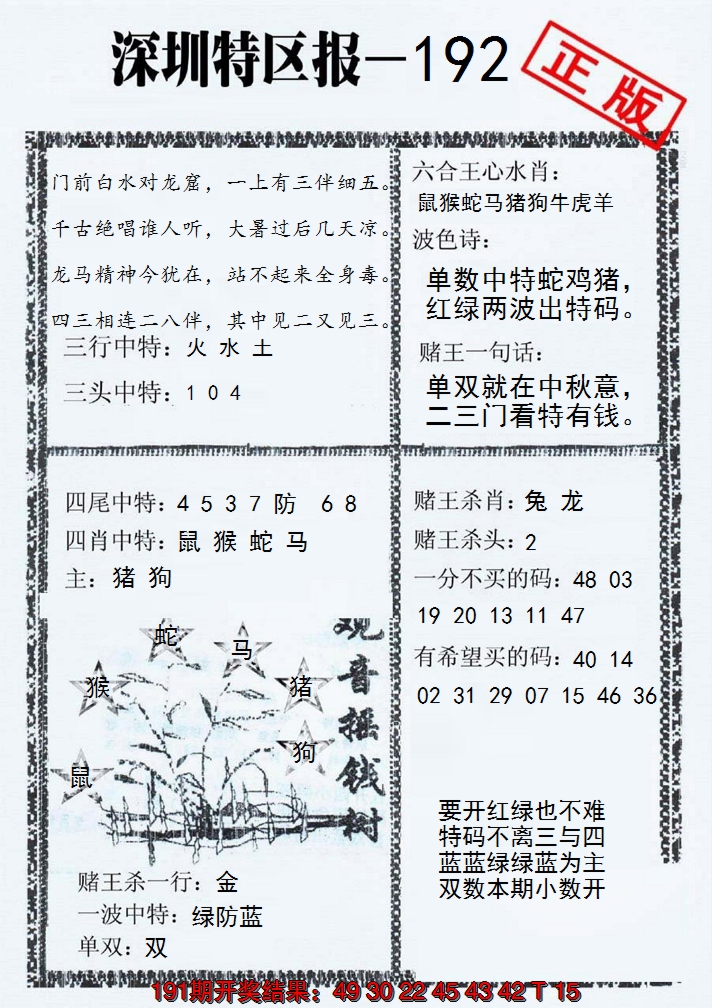 深圳特区报—192
正版
门前白水对龙窟，一上有三伴细五。
千古绝唱谁人听，大暑过后几天凉。
龙马精神今犹在，站不起来全身毒。
四三相连二八伴，其中见二又见三。
三行中特：火 水 土
三头中特：1 0 4
六合王心水肖：
鼠猴蛇马猪狗牛虎羊
波色诗：
单数中特蛇鸡猪，
红绿两波出特码。
赌王一句话：
单双就在中秋意，
二三门看特有钱。
四尾中特：4 5 3 7 防 6 8
四肖中特：鼠 猴 蛇 马
主：猪 狗
蛇
马
猴
猪
狗
鼠
观音摇钱树
赌王杀一行：金
一波中特：绿防蓝
单双：双
赌王杀肖：兔 龙
赌王杀头：2
一分不买的码：48 03
19 20 13 11 47
有希望买的码：40 14
02 31 29 07 15 46 36
要开红绿也不难
特码不离三与四
蓝蓝绿绿蓝为主
双数本期小数开
191期开奖结果：49 30 22 45 43 42 T 15